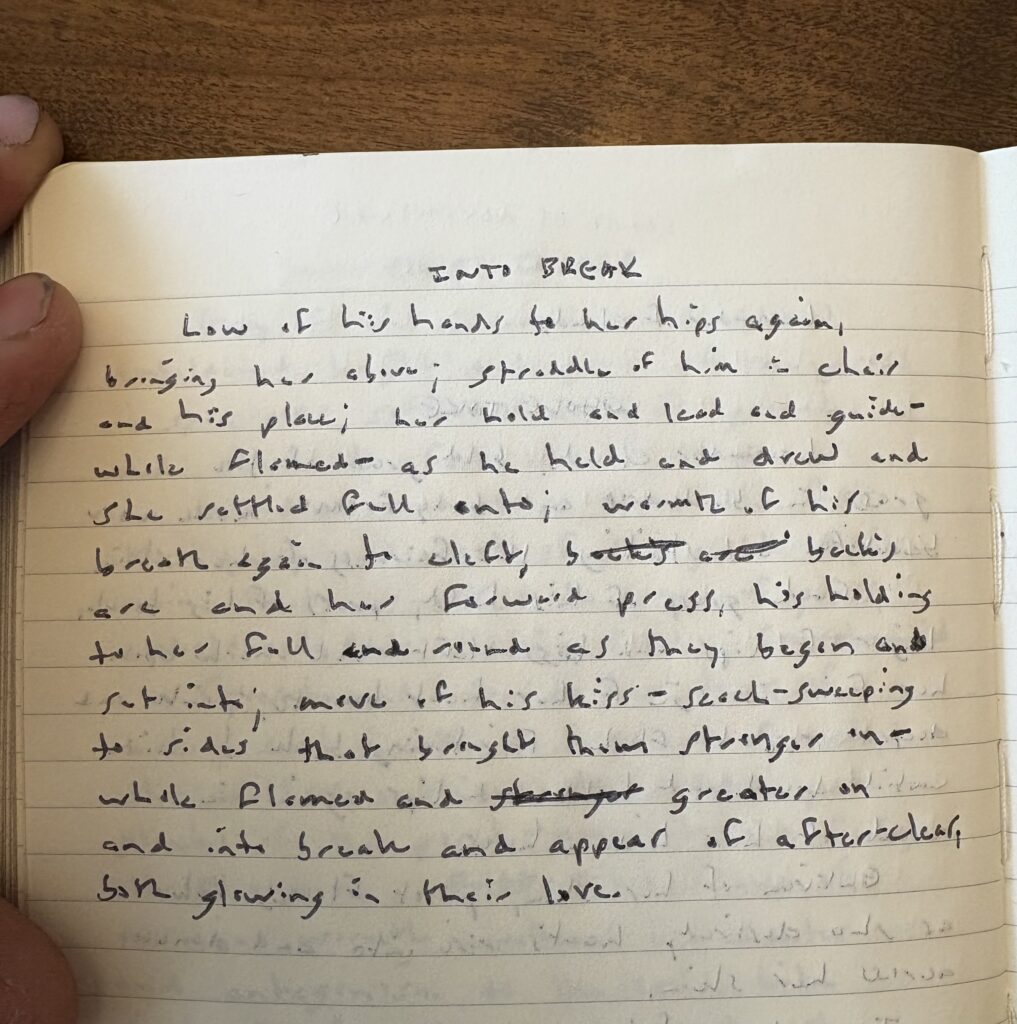 INTO BREAK
Low of his hands to her hips again,
bringing her above; straddle of him in chair
and his place; her hold and lead and guide-
while flamed- as he held and drew and
she settled full onto; warmth of his
breath again to cleft, backs
are and her forward press, his holding
to her full and round as they began and
set into; move of his kiss - seach-sweeping
to sides that brought them stronger on-
while flamed and greater on
and into break and appear of after-clear,
both glowing in their love.